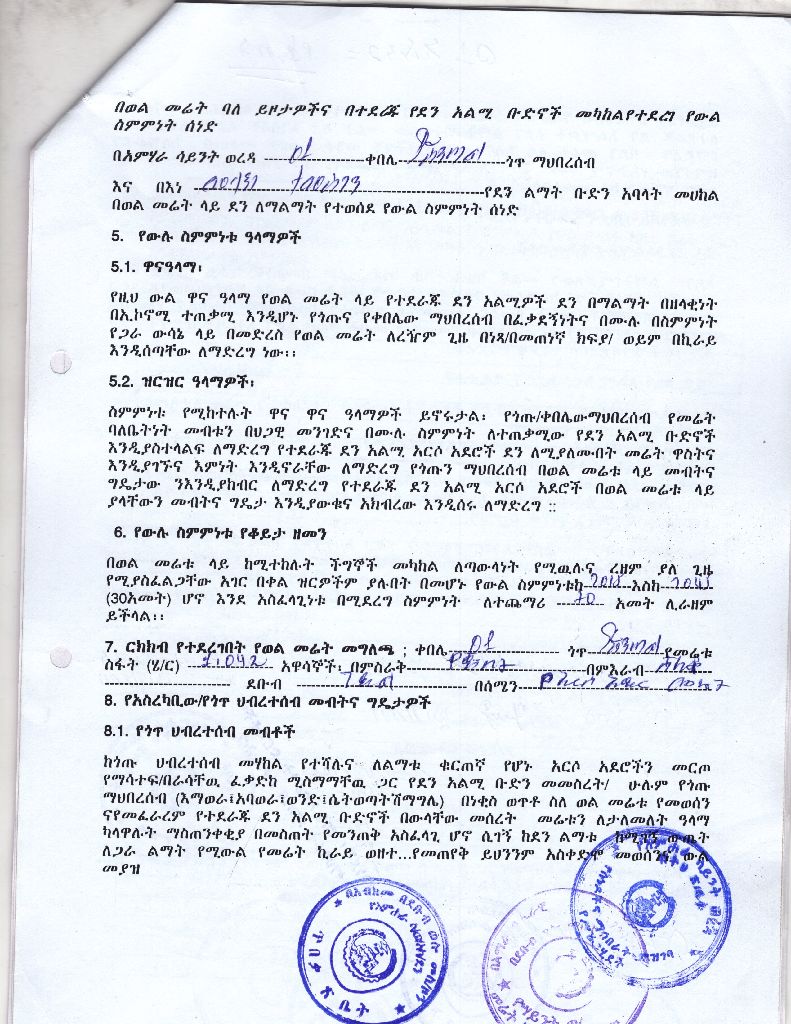 በወል መሬት ባለ ይዞታዎችና በተደራጁ የደን አልሚ ቡድኖች መካከልየተደረገ የውል
ስምምነት ሰነድ
በአምሃራ ሳይንት ወረዳ ---------- 01 ----------ቀበሌ------------------ጎጥ ማህበረሰብ
እና በእነ ------------------------------የደን ልማት ቡድን አባላት መሀከል
በወል መሬት ላይ ደን ለማልማት የተወሰደ የውል ስምምነት ሰነድ
5. የውሉ ስምምነቱ ዓላማዎች
5.1. ዋናዓላማ፡
የዚህ ውል ዋና ዓላማ የወል መሬት ላይ የተደራጁ ደን አልሚዎች ደን በማልማት በዘላቂነት
በኢኮኖሚ ተጠቃሚ እንዲሆኑ የጎጡና የቀበሌው ማህበረሰብ በፈቃደኝነትና በሙሉ በስምምነት
የጋራ ውሳኔ ላይ በመድረስ የወል መሬት ለረዥም ጊዜ በነጻ/በመጠነኛ ክፍያ/ ወይም በኪራይ
እንዲሰጣቸው ለማድረግ ነው፡፡
5.2. ዝርዝር ዓላማዎች፡
ስምምነቱ የሚከተሉት ዋና ዋና ዓላማዎች ይኖሩታል፡ የጎጡ/ቀበሌውማህበረሰብ የመሬት
ባለቤትነት መብቱን በህጋዊ መንገድና በሙሉ ስምምነት ለተጠቃሚው የደን አልሚ ቡድኖች
እንዲያስተላልፍ ለማድረግ የተደራጁ ደን አልሚ አርሶ አደሮች ደን ለሚያለሙበት መሬት ዋስትና
እንዲያገኙና እምነት እንዲኖራቸው ለማድረግ የጎጡን ማህበረሰብ በወል መሬቱ ላይ መብትና
ግዴታው ንእንዲያከብር ለማድረግ የተደራጁ ደን አልሚ አርሶ አደሮች በወል መሬቱ ላይ
ያላቸውን መብትና ግዴታ እንዲያውቁና አክብረው እንዲሰሩ ለማድረግ ::
6. የውሉ ስምምነቱ የቆይታ ዘመን
በወል መሬቱ ላይ ከሚተከሉት ችግኞች መካከል ለጣውላነት የሚዉሉና ረዘም ያለ ጊዜ
የሚያስፈልጋቸው አገር በቀል ዝርዎችም ያሉበት በመሆኑ የውል ስምምነቱከ 2015 እስከ 2045
(30አመት) ሆኖ እንደ አስፈላጊነቱ በሚደረግ ስምምነት ለተጨማሪ ---- 10 -- አመት ሊራዘም
ይችላል፡፡
7. ርክክብ የተደረገበት የወል መሬት መግለጫ ; ቀበሌ---- 01 ---------- ጎጥ የመሬቱ
ስፋት (ሄ/ር) --- 1.042 -- አዋሳኞች፡ በምስራቅ----------------በምእራብ
---------------------- ደቡብ ---------------------- በሰሜን
8. የአስረካቢው/የጎጥ ህብረተሰብ መብትና ግዴታዎች
8.1. የጎጥ ህብረተሰብ መብቶች
ከጎጡ ሀብረተሰብ መሃከል የተሻሉና ለልማቱ ቁርጠኛ የሆኑ አርሶ አደሮችን መርጦ
የማሳተፍ/በራሳቸዉ ፈቃድከ ሚስማማቸዉ ጋር የደን አልሚ ቡድን መመስረት/ ሁሉም የጎጡ
ማህበረሰብ (እማወራ፤አባወራ፤ወንድ፤ሴትወጣትሽማግሌ) በነቂስ ወጥቶ ስለ ወል መሬቱ የመወሰን
ናየመፈራረም የተደራጁ ደን አልሚ ቡድኖች በውላቸው መሰረት መሬቱን ለታለመለት ዓላማ
ካላዋሉት ማስጠንቀቂያ በመስጠት የመንጠቅ አስፈላጊ ሆኖ ሲገኝ ከደን ልማቱ ከሚገኝ ውጤት
ለጋራ ልማት የሚውል የመሬት ኪራይ ወዘተ...የመጠየቅ ይህንንም አስቀድሞ መወሰንና ውል
መያዝ